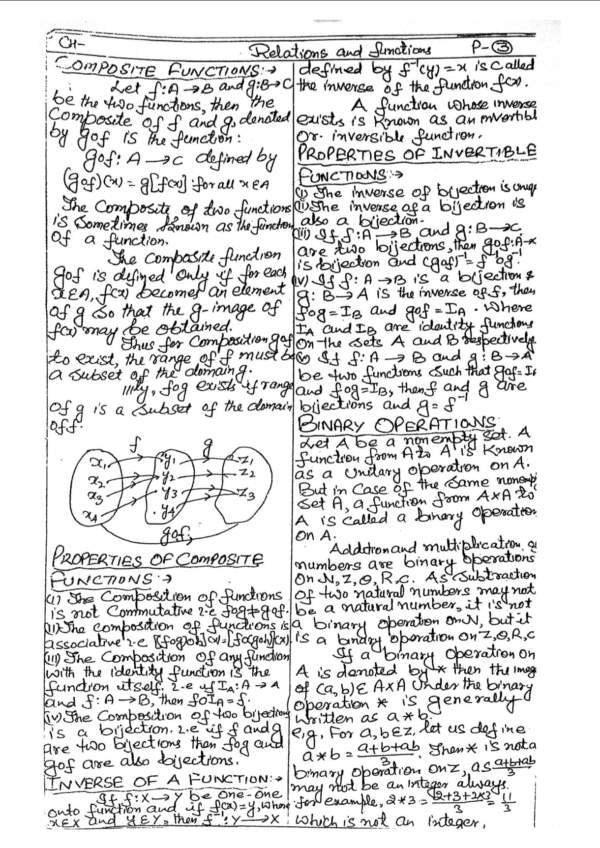 CH-
Relations and functions P-③
COMPOSITE FUNCTIONS:→
Let f:A→B and g:B→C
be the two functions, then the
Composite of f and g, denoted
by gof is the function:
gof: A→C defined by
(gof)(x) = g[f(x)] for all x∈A
The Composite of two functions
is Sometimes known as the function
of a function.
The composite function
gof is defined Only if for each
x∈A, f(x) becomes an element
of g so that the g-image of
f(x) may be obtained.
Thus for Composition gof
to exist, the range of f must be
a subset of the domain g.
Illly, fog exists if range
of g is a subset of the domain
of f.
f g
x₁ y₁ z₁
x₂ y₂ z₂
x₃ y₃ z₃
x₄ y₄
gof
PROPERTIES OF COMPOSITE
FUNCTIONS:→
(i) The Composition of functions
is not Commutative i.e fog≠gof.
(ii) The composition of functions is
associative i.e [(fog)oh](x)=[fo(goh)](x).
(iii) The Composition of any function
with the identity function is the
function itself. i.e if I_A: A→A
and f: A→B, then foI_A = f.
(iv) The Composition of two bijections
is a bijection. i.e if f and g
are two bijections then fog and
gof are also bijections.
INVERSE OF A FUNCTION:→
If f:X→Y be one-one
onto function and if f(x)=y, where
x∈X and y∈Y, then f⁻¹:Y→X
defined by f⁻¹(y)=x is Called
the inverse of the function f(x).
A function whose inverse
exists is Known as an invertibl
or inversible function.
PROPERTIES OF INVERTIBLE
FUNCTIONS:→
(i) The inverse of bijection is uniqu
(ii) The inverse of a bijection is
also a bijection.
(iii) If f:A→B and g:B→C.
are two bijections, then gof:A→
is bijection and (gof)⁻¹= f⁻¹og⁻¹.
(iv) If f: A→B is a bijection &
g: B→A is the inverse of f, then
fog=I_B and gof=I_A. Where
I_A and I_B are identity functions
on the sets A and B respectively.
(v) If f: A→B and g:B→A
be two functions such that gof=I
and fog=I_B, then f and g are
bijections and g=f⁻¹
BINARY OPERATIONS
Let A be a non empty set. A
function from A to A is Known
as a Unitary operation on A.
But in Case of the same nonempt
set A, a function from A×A to
A is called a binary operation
on A.
Addition and multiplication of
numbers are binary operations
on N, Z, Q, R, C. As Subtraction
of two natural numbers may not
be a natural number, it is not
a binary operation on N, but it
is a binary operation on Z, Q, R, C
If a binary operation on
A is danoted by * then the imag
of (a,b)∈A×A Under the binary
operation * is generally
written as a*b.
e.g. For a,b∈Z, let us define
a*b = a+b+ab/3. Then * is not a
binary operation on Z, as a+b+ab/3
may not be an integer always.
for example, 2*3 = 2+3+2×3/3 = 11/3
which is not an integer.